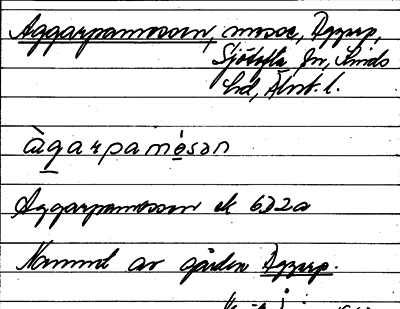 Aggarpamossen, mosse, Aggarp,
Sjötofta sn, Kinds
hd, Älvsb. l.
àgarpamósən
Aggarpamossen ek 6D2a
Namnet av gården Aggarp.